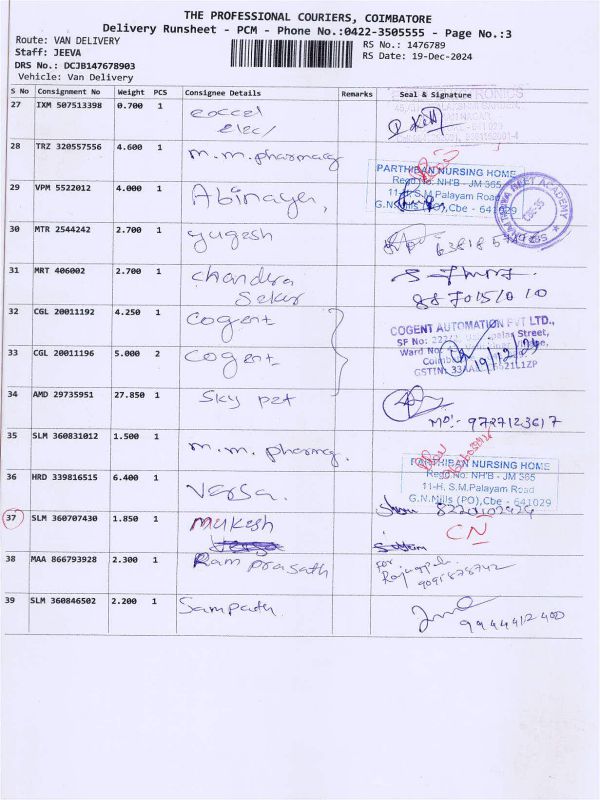 THE PROFESSIONAL COURIERS, COIMBATORE
Delivery Runsheet - PCM - Phone No.:0422-3505555 - Page No.:3
Route: VAN DELIVERY
RS No.: 1476789
Staff: JEEVA
RS Date: 19-Dec-2024
DRS No.: DCJB147678903
Vehicle: Van Delivery
S No Consignment No Weight PCS Consignee Details Remarks Seal & Signature
27 IXM 507513398 0.700 1
28 TRZ 320557556 4.600 1 m.m.pharmacy
PARTHIBAN NURSING HOME
Regd.No: NH'B - JM 365
11-H, S.M.Palayam Road
G.N.Mills (PO),Cbe - 641029
29 VPM 5522012 4.000 1 Abinaya,
30 MTR 2544242 2.700 1 yugesh
31 MRT 406002 2.700 1 chandra
Sekar
8870151010
32 CGL 20011192 4.250 1 cogent
COGENT AUTOMATION PVT LTD.,
33 CGL 20011196 5.000 2 cogent
19/12/24
34 AMD 29735951 27.850 1 Sky pet
Mo:- 9727123617
35 SLM 360831012 1.500 1 m.m.pharmacy.
PARTHIBAN NURSING HOME
Regd.No: NH'B - JM 365
11-H, S.M.Palayam Road
G.N.Mills (PO),Cbe - 641029
36 HRD 339816515 6.400 1 Versa.
37 SLM 360707430 1.850 1 Mukesh
CN
38 MAA 866793928 2.300 1 Ram prasath
For
Rajagopal
9091878742
39 SLM 360846502 2.200 1 Sampath.
9944412400